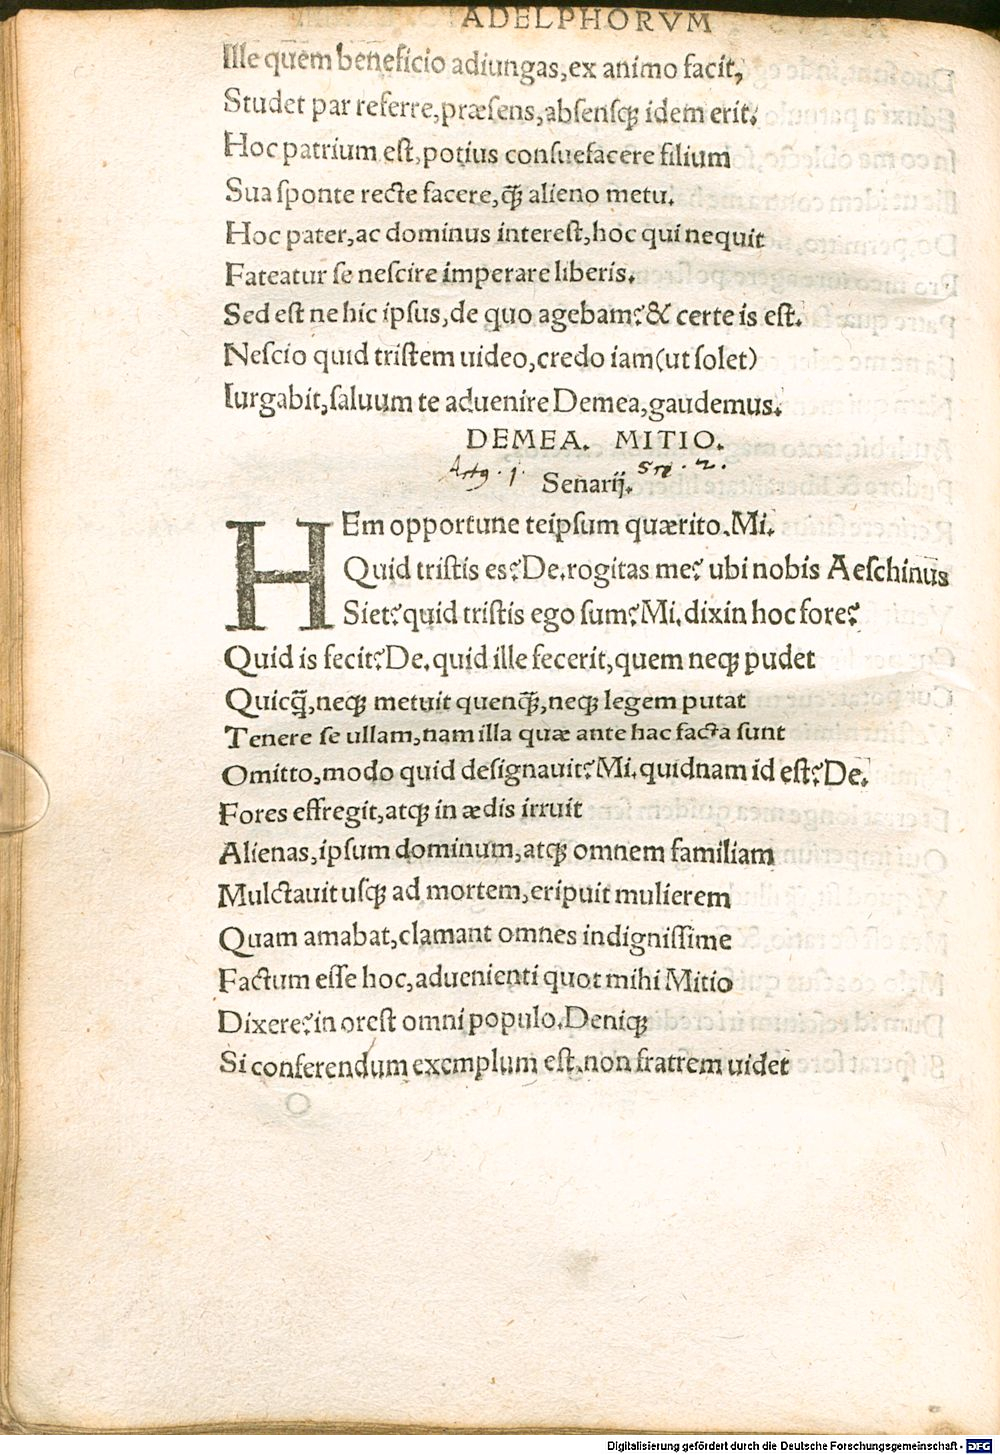 ADELPHORVM
Ille quem beneficio adiungas,ex animo facit,
Studet par referre,præſens,abſensq̃ idem erit.
Hoc patrium eſt,potius conſuefacere filium
Sua ſponte recte facere,q̃ alieno metu.
Hoc pater,ac dominus intereſt,hoc qui nequit
Fateatur ſe neſcire imperare liberis.
Sed eſt ne hic ipſus,de quo agebam?& certe is eſt.
Neſcio quid triſtem uideo,credo iam(ut ſolet)
Iurgabit,ſaluum te aduenire Demea,gaudemus.
DEMEA. MITIO.
Senarij.
HEm opportune teipſum quærito.Mi.
Quid triſtis es?De.rogitas me? ubi nobis Aeſchinus
Siet?quid triſtis ego ſum?Mi.dixin hoc fore?
Quid is fecit?De.quid ille fecerit,quem neqꝫ pudet
Quicq̃,neqꝫ metuit quenq̃,neqꝫ legem putat
Tenere ſe ullam,nam illa quæ ante hac facta ſunt
Omitto,modo quid deſignauit?Mi.quidnam id eſt?De.
Fores effregit,atqꝫ in ædis irruit
Alienas,ipſum dominum,atqꝫ omnem familiam
Mulctauit uſqꝫ ad mortem,eripuit mulierem
Quam amabat,clamant omnes indigniſſime
Factum eſſe hoc,aduenienti quot mihi Mitio
Dixere?in oreſt omni populo.Deniqꝫ
Si conferendum exemplum eſt.non fratrem uidet
Digitalisierung gefördert durch die Deutsche Forschungsgemeinschaft - DFG